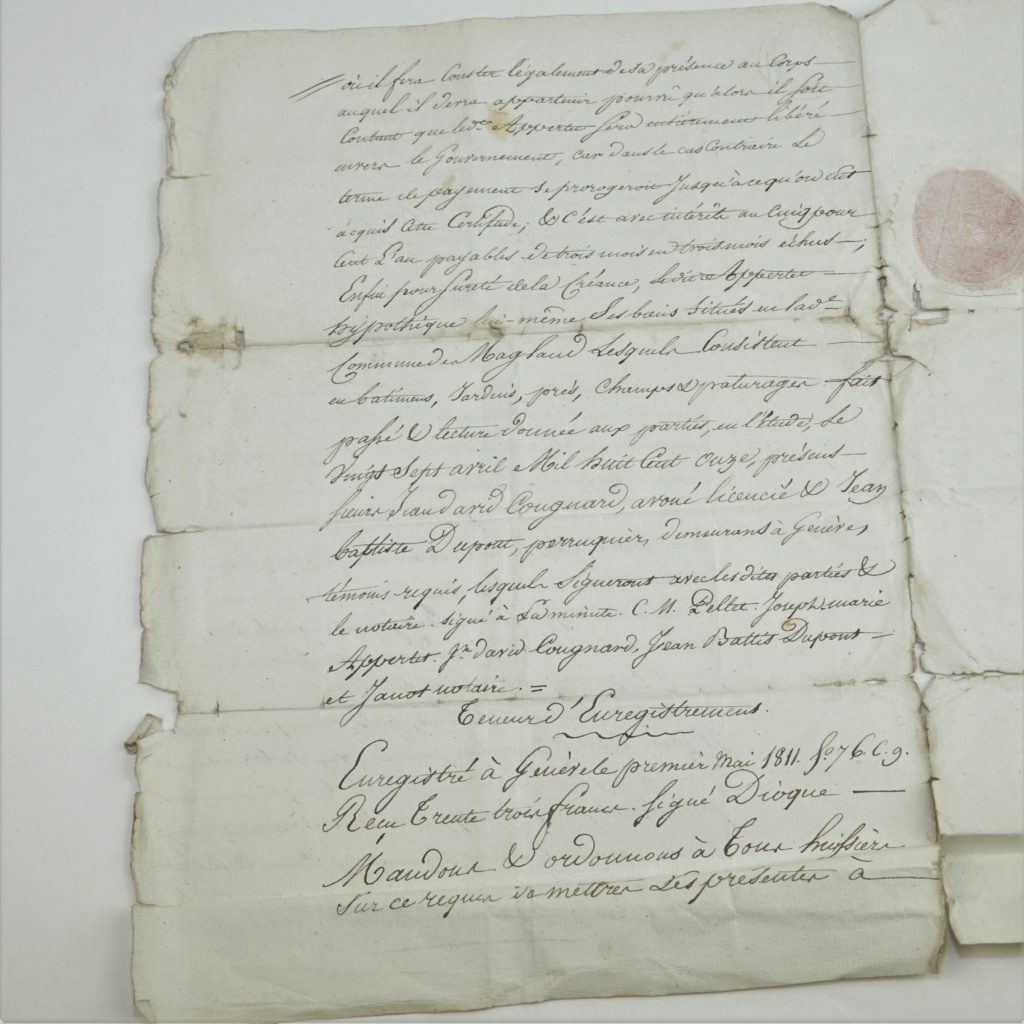 où il fera Conster légalement de sa présence au Corps
auquel il devra appartenir pourvû qu'alors il soit
Constant que led.t Appertet sera entièrement libéré
envers le Gouvernement, car dans le cas Contraire Le
terme de payement se prorogeroit Jusqu'à ce qu'on eut
acquis Cette Certitude; & c'est avec intérêts au Cinq pour
Cent L'an payables de trois mois en trois mois échus;
Enfin pour Sureté de la Créance, Appertet
hypothèque lui-même Ses biens Situés en lad.e
Commune de Magland Lesquels Consistent
en batimens, Jardins, prés, Champs & paturages fait
passé & lecture donnée aux parties, en l'étude, Le
Vingt Sept avril Mil huit Cent Onze, présens
sieurs Jean david Cougnard, avoué licencié & Jean
baptiste Dupont, perruquier, demeurans à Genève,
témoins requis, lesquels Signeront avec les dites parties &
le notaire. signé à La minute. C. M. Pellet. Joseph marie
Appertet. Jn. david Cougnard, Jean Battis Dupont
et Janot notaire. =
Teneur d'Enregistrement.
Enregistré à Genève le premier Mai 1811. fo. 76. C. 9.
Recu Trente trois francs. signé Dioque
Mandons & ordonnons à Tous huissiers
Sur ce requis de mettre Les présentes à